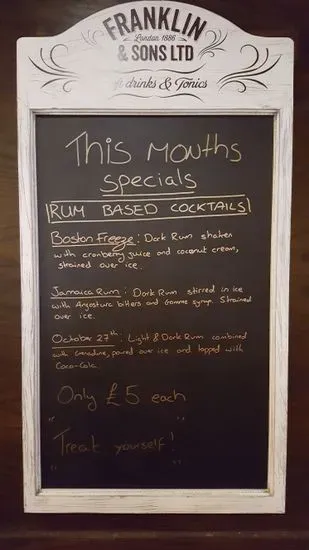 FRANKLIN
London 1886
& SONS LTD
ft drinks & Tonics
This Months
specials
RUM BASED COCKTAILS
Boston Freeze: Dark Rum shaken
with cranberry juice and coconut cream,
strained over ice.
Jamaica Rum: Dark Rum stirred in ice
with Angostura bitters and Gomme syrup. Strained
over ice.
October 27th: Light & Dark Rum combined
with Grenadine, poured over ice and topped with
Coca-Cola.
Only £5 each
"Treat yourself!"